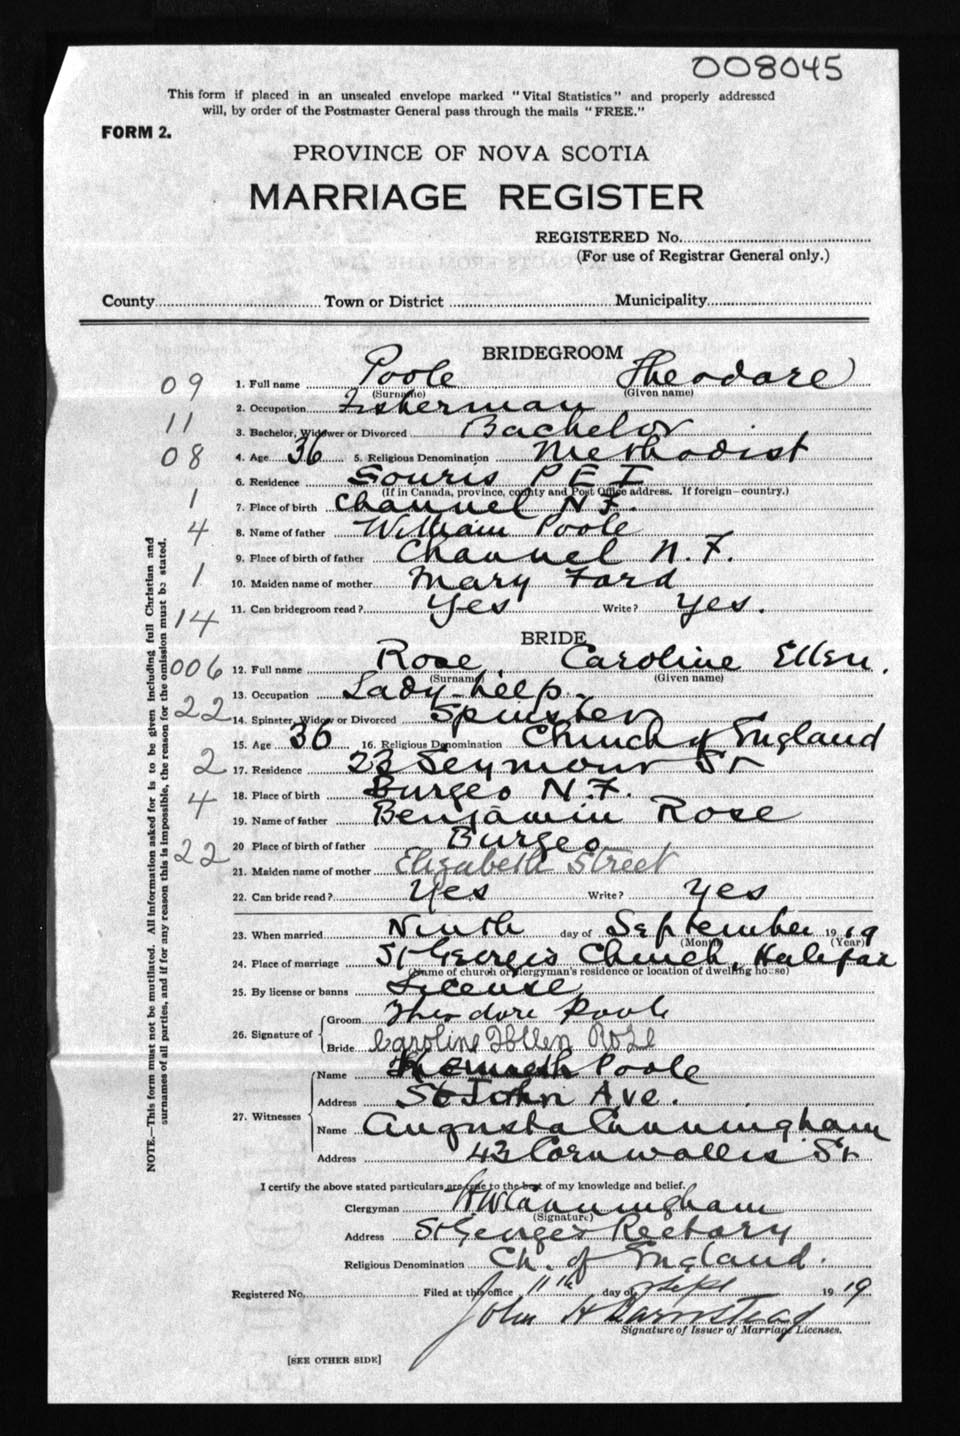 008045
This form if placed in an unsealed envelope marked "Vital Statistics" and properly addressed
will, by order of the Postmaster General pass through the mails "FREE."
FORM 2.
PROVINCE OF NOVA SCOTIA
MARRIAGE REGISTER
REGISTERED No.
(For use of Registrar General only.)
County Town or District Municipality
BRIDEGROOM
09 1. Full name Poole Theodore
(Surname) (Given name)
2. Occupation Fisherman
11 3. Bachelor, Widower or Divorced Bachelor
08 4. Age 36 5. Religious Denomination Methodist
6. Residence Souris P E I
(If in Canada, province, county and Post Office address. If foreign—country.)
1 7. Place of birth Channel N.F.
4 8. Name of father William Poole
9. Place of birth of father Channel N.F.
1 10. Maiden name of mother Mary Ford
14 11. Can bridegroom read? Yes Write? Yes.
BRIDE
006 12. Full name Rose Caroline Ellen.
(Surname) (Given name)
13. Occupation Lady-help.
22 14. Spinster, Widow or Divorced Spinster
15. Age 36 16. Religious Denomination Church of England
2 17. Residence 23 Seymour St
18. Place of birth Burgeo N.F.
4 19. Name of father Benjamin Rose
22 20 Place of birth of father Burgeo
21. Maiden name of mother Elizabeth Street
22. Can bride read? Yes Write? Yes
23. When married Ninth day of September 1919
(Month) (Year)
24. Place of marriage St George's Church, Halifax
(Name of church or clergyman's residence or location of dwelling house)
25. By license or banns License
26. Signature of Groom Theodore Poole
Bride Caroline Ellen Rose
27. Witnesses Name Kenneth Poole
Address St John Ave.
Name Augusta Cunningham
Address 43 Cornwallis St
I certify the above stated particulars are true to the best of my knowledge and belief.
Clergyman H W Cunningham
(Signature)
Address St George's Rectory
Religious Denomination Ch. of England.
Registered No. Filed at this office 11th day of Sept 1919
John H Barnstead
Signature of Issuer of Marriage Licenses.
[SEE OTHER SIDE]
NOTE.—This form must not be mutilated. All information asked for is to be given including full Christian and
surnames of all parties, and if for any reason this is impossible, the reason for the omission must be stated.